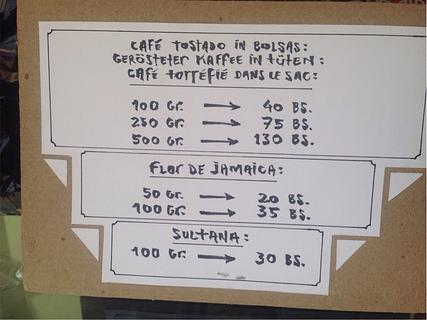 CAFÉ TOSTADO IN BOLSAS:
GERÖSTETER KAFFEE IN TÜTEN:
CAFÉ TORRÉFIÉ DANS LE SAC:
100 Gr. → 40 BS.
250 Gr. → 75 BS.
500 Gr. → 130 BS.
FLOR DE JAMAICA:
50 Gr. → 20 BS.
100 Gr. → 35 BS.
SULTANA:
100 Gr. → 30 BS.